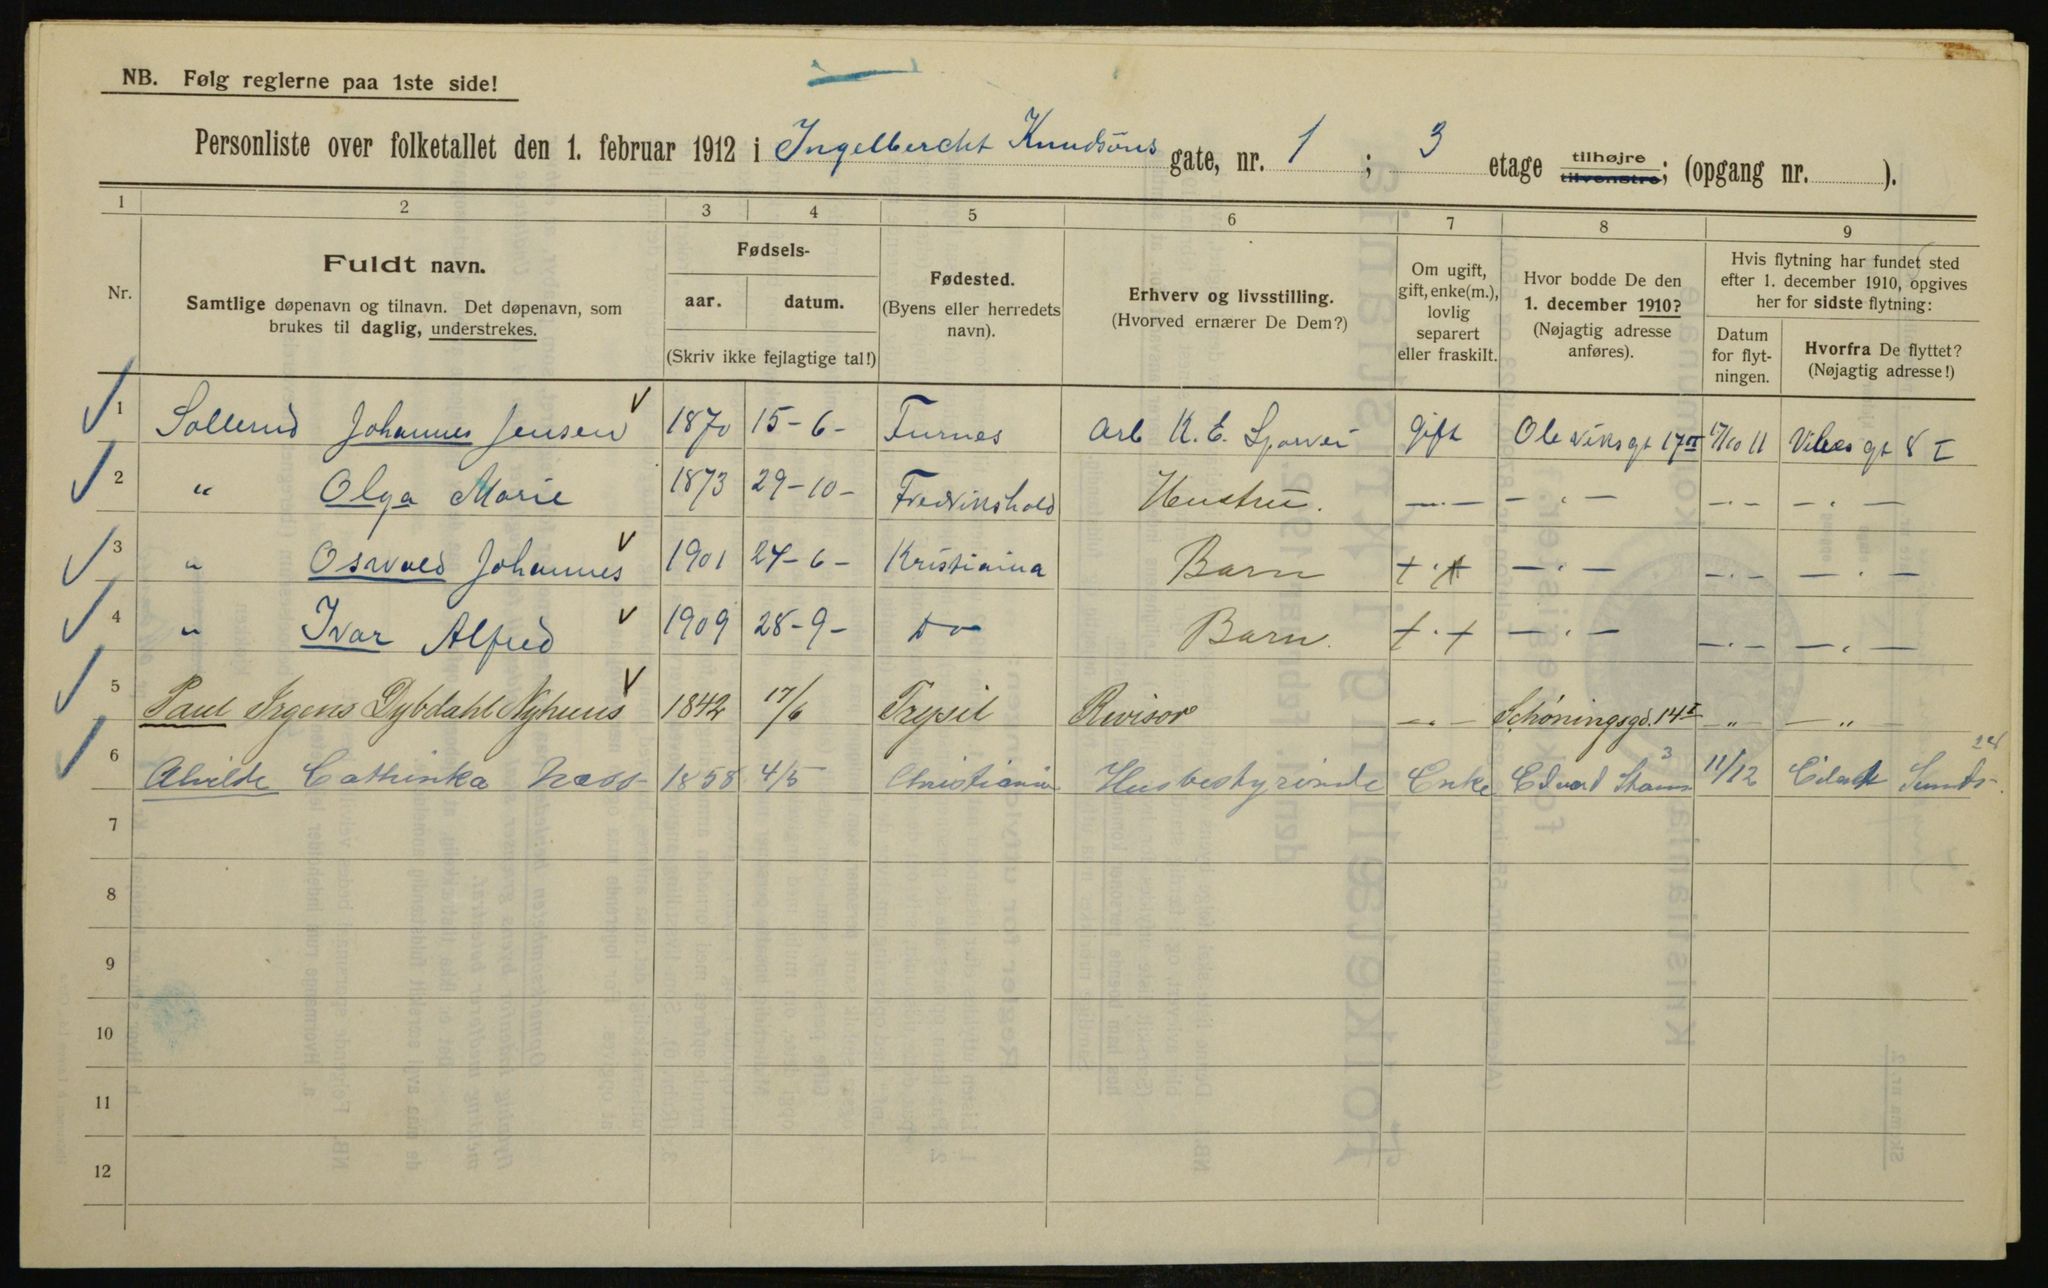 NB. Følg reglerne paa 1ste side!
Personliste over folketallet den 1. februar 1912 i Ingelbercht Knudsöns gate, nr. 1; 3 etage tilhøjre tilvenstre; (opgang nr. ).
1 2 3 4 5 6 7 8 9
Nr.
Fuldt navn.
Samtlige døpenavn og tilnavn. Det døpenavn, som
brukes til daglig, understrekes.
Fødsels-
aar. datum.
(Skriv ikke fejlagtige tal!)
Fødested.
(Byens eller herredets
navn).
Erhverv og livsstilling.
(Hvorved ernærer De Dem?)
Om ugift,
gift, enke(m.),
lovlig
separert
eller fraskilt.
Hvor bodde De den
1. december 1910?
(Nøjagtig adresse
anføres).
Hvis flytning har fundet sted
efter 1. december 1910, opgives
her for sidste flytning:
Datum
for flyt-
ningen.
Hvorfra De flyttet?
(Nøjagtig adresse!)
1 Sollerud Johannes Jensen 1870 15-6- Furnes Arb K. E. Sporvei gift Ole Viksgt 17 II 17/10 11 Vibes gt 8 I
2 " Olga Marie 1873 29-10- Fredrikshald Hustru. —.— —.— —.— —.—
3 " Osvald Johannes 1901 27-6- Kristiania Barn +.+ —.— —.— —.—
4 " Ivar Alfred 1909 28-9- do Barn. +.+ —.— —.— —.—
5 Paul Irgens Dybdahl Nyhuus 1842 17/6 Trysil Revisor —"— Schøningsgd. 14 I —"— —"—
6 Alvilde Cathinka Næss 1858 4/5 Christiania Husbestyrinde Enke Edvard Storms 3 11/1 12 Eilert Sunds- 24
7
8
9
10
11
12